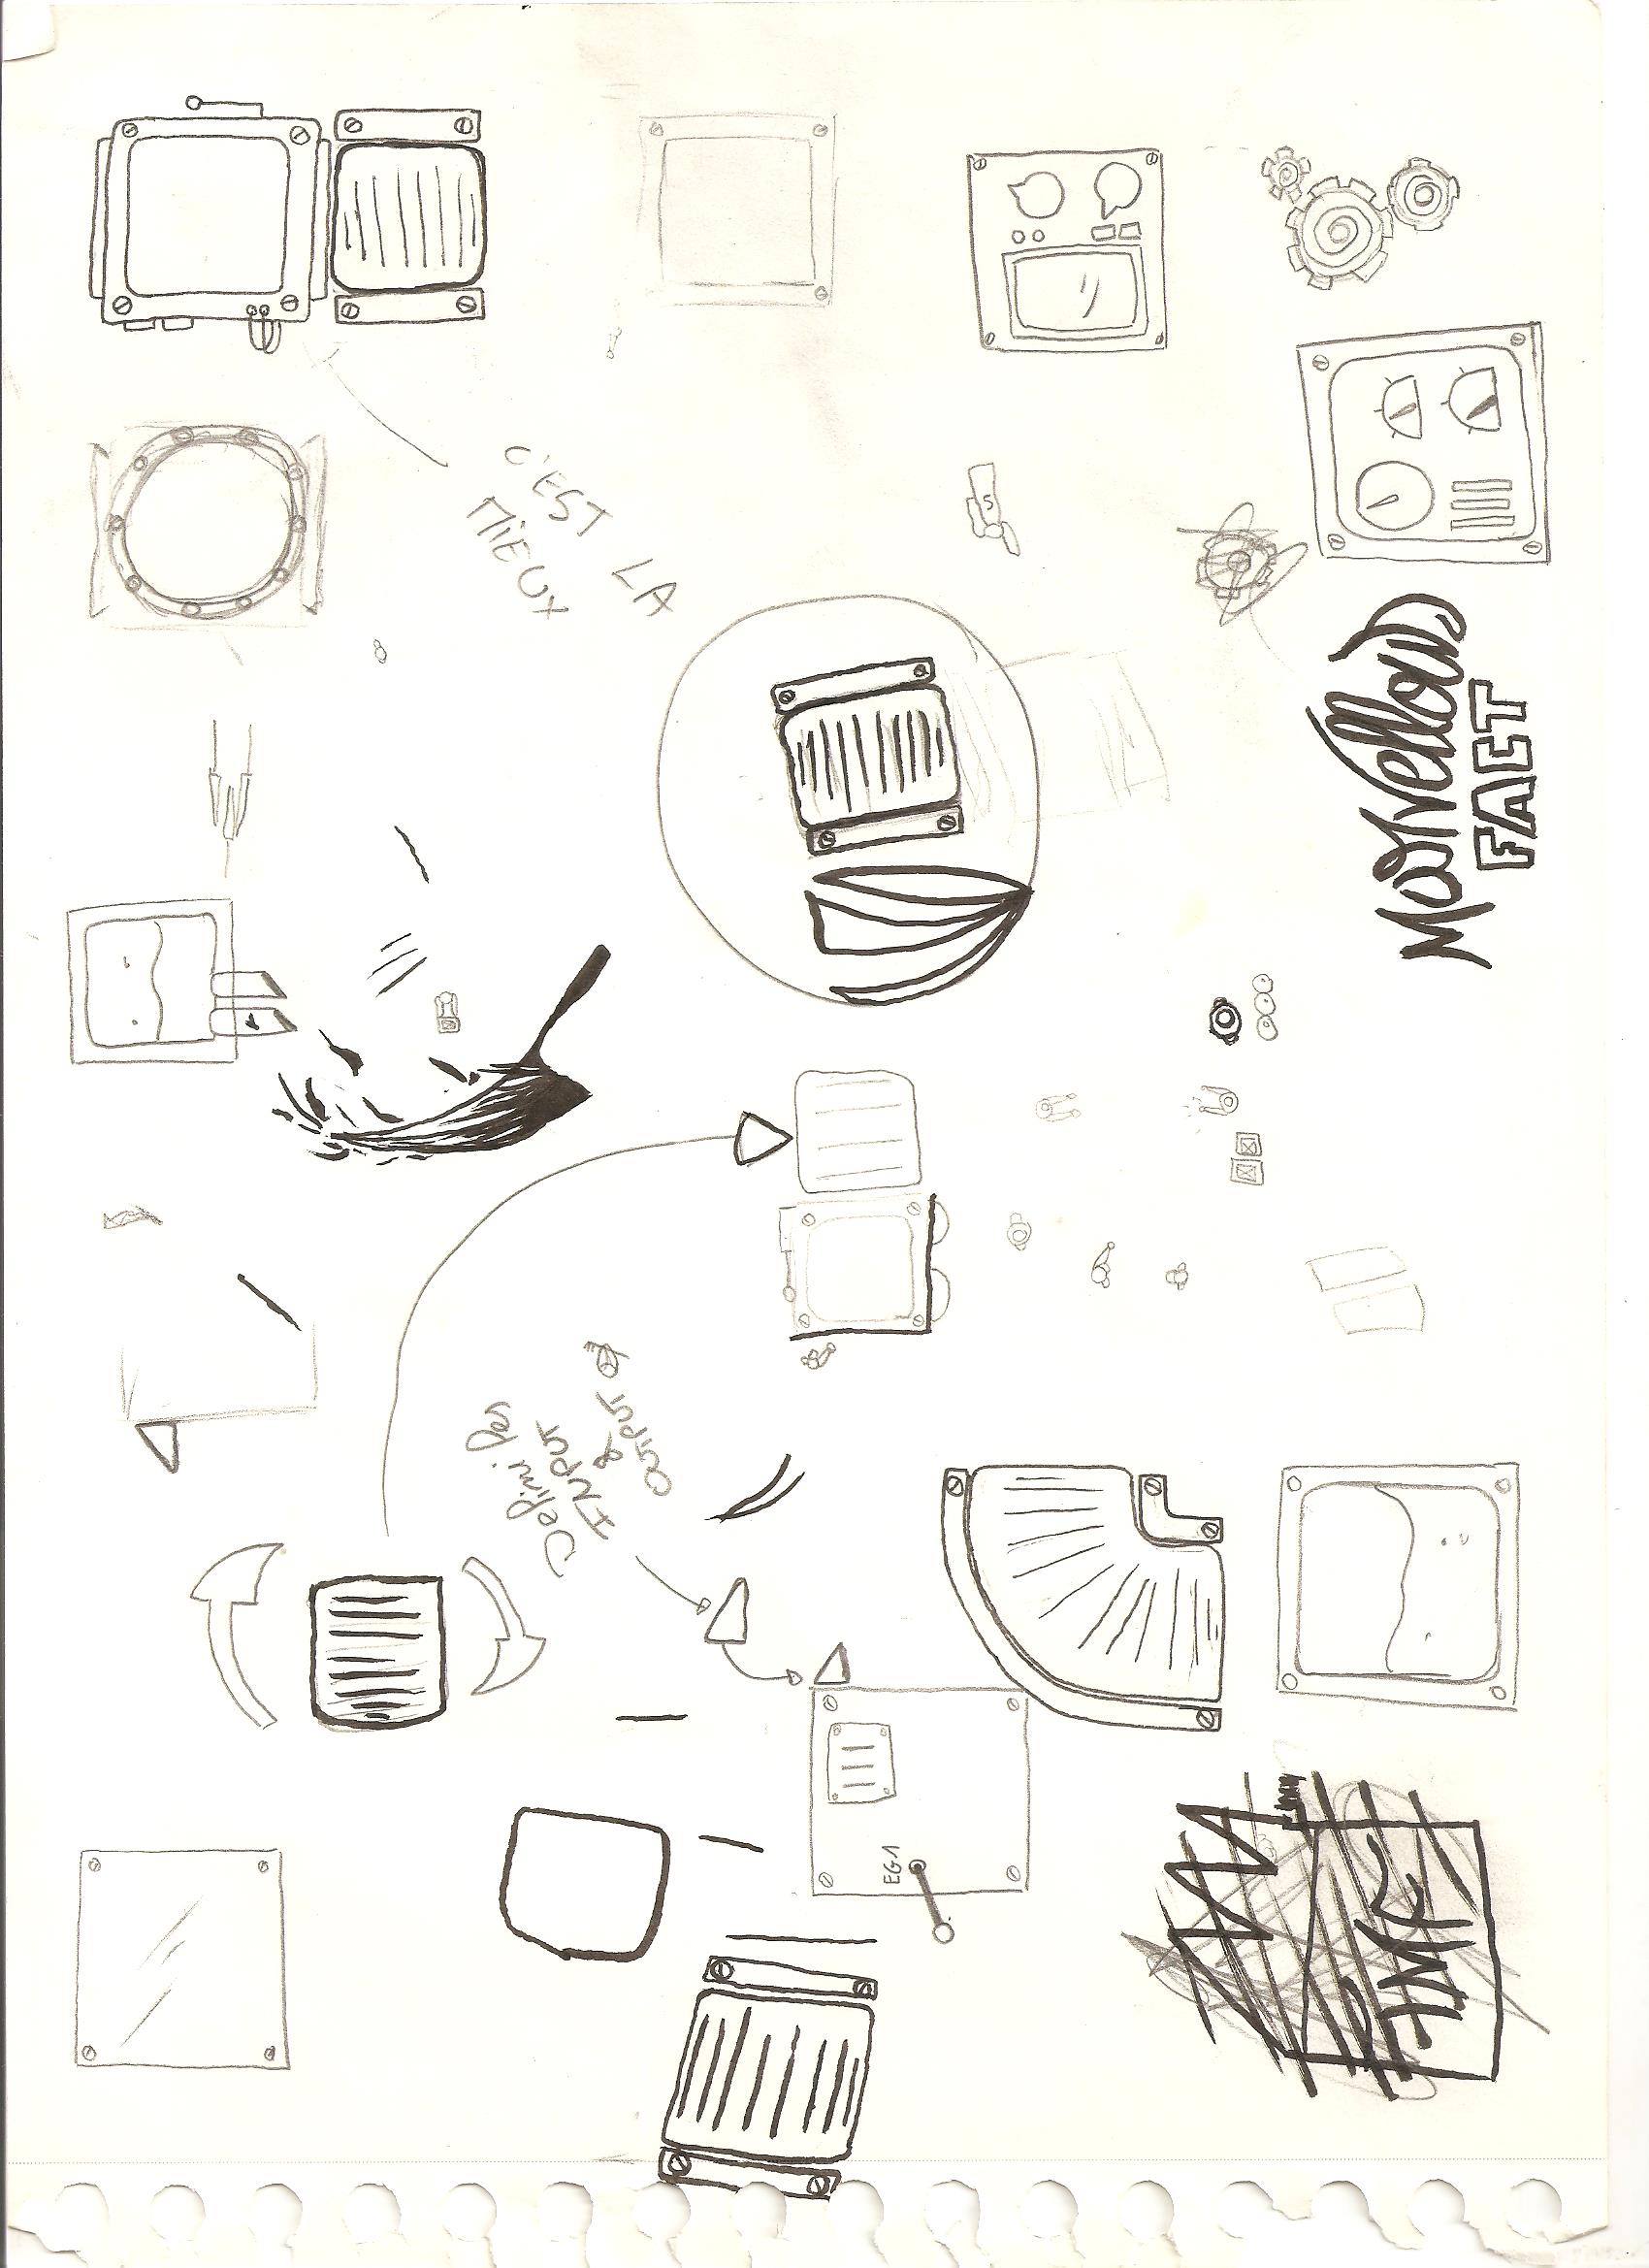 C'EST LA
MiEUX
Marvellous
FACT
Definir les
INPUT
&
OUTPUT
EG1